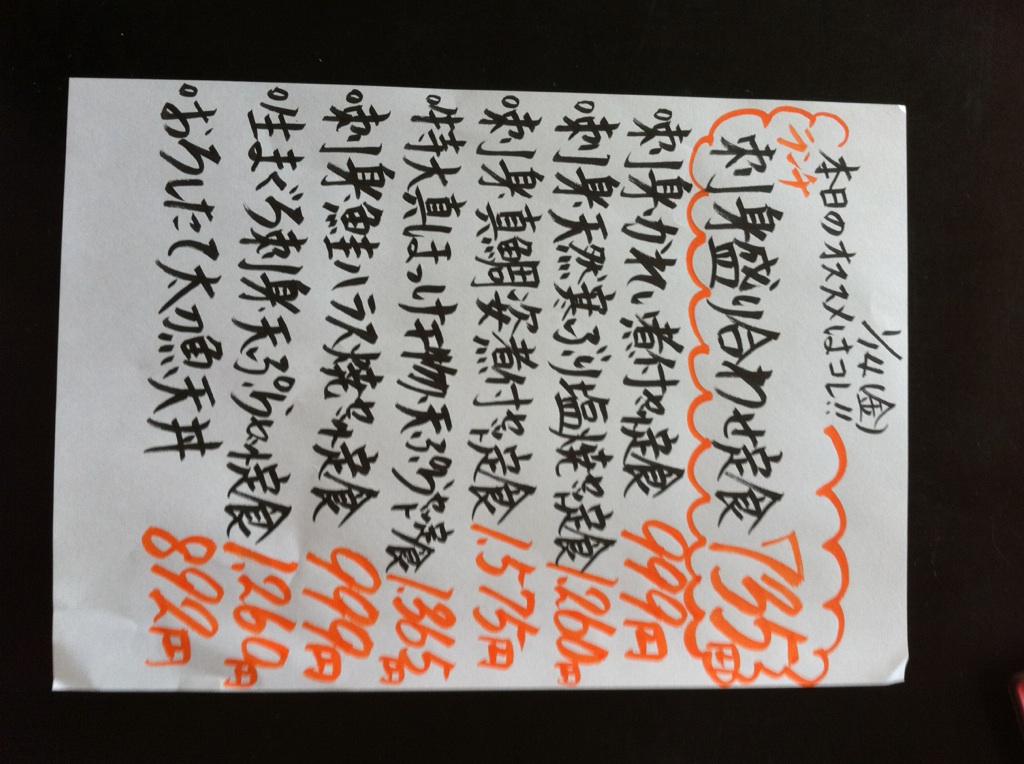 1/14(金)
本日のオススメはコレ!!
ランチ
刺身盛り合わせ定食 735円
°刺身かれい煮付や定食 999円
°刺身天然真ぶり塩焼や定食 1.260円
°刺身真鯛姿煮付や定食 1.575円
°特大真ほっけ干物天ぷらや定食 1.365円
°刺身鮭ハラス焼や定食 999円
°生まぐろ刺身天ぷらや定食 1.260円
°おろしたて太刀魚天丼 892円